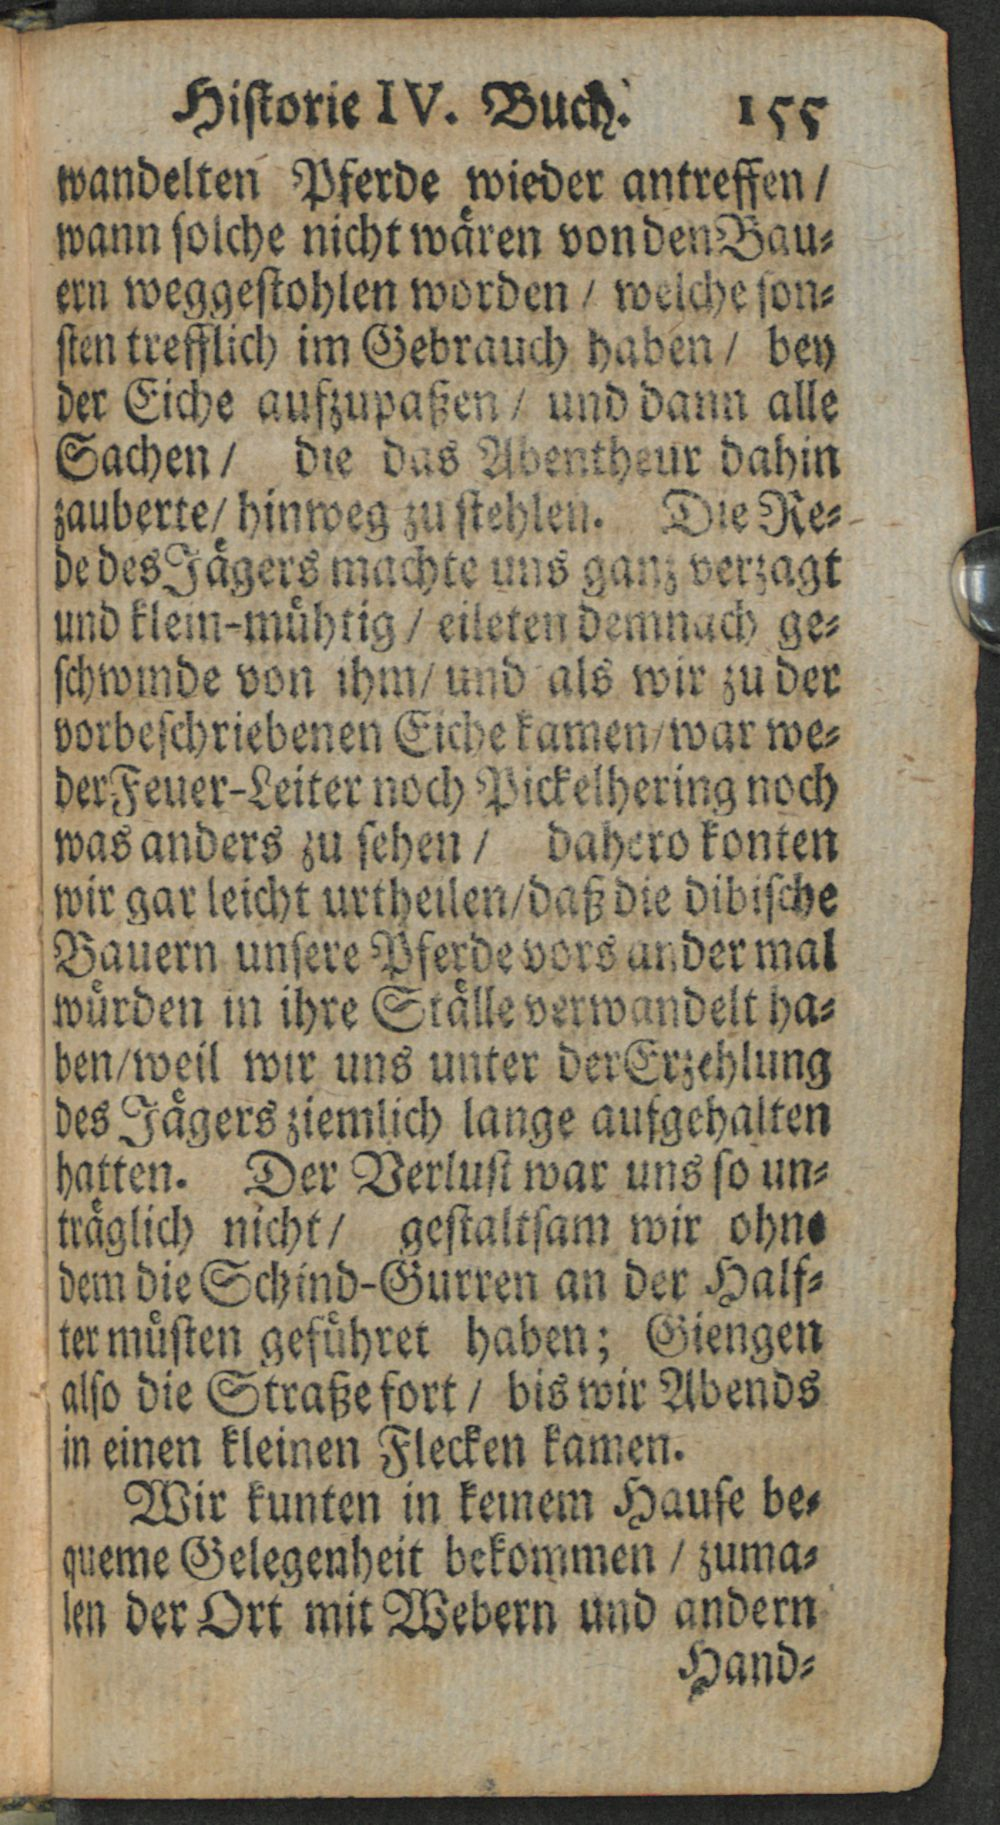 Hiſtorie IV. Buch. 155
wandelten Pferde wieder antreffen /
wann ſolche nicht wären von den Bau⸗
ern weggeſtohlen worden / welche ſon⸗
ſten trefflich im Gebrauch haben / bey
der Eiche aufzupaßen / und dann alle
Sachen / die das Abentheur dahin
zauberte / hinweg zu ſtehlen. Die Re⸗
de des Jägers machte uns ganz verzagt
und klein-mühtig / eileten demnach ge⸗
ſchwinde von ihm / und als wir zu der
vorbeſchriebenen Eiche kamen / war we⸗
der Feuer-Leiter noch Pickelhering noch
was anders zu ſehen / dahero konten
wir gar leicht urtheilen / daß die dibiſche
Bauern unſere Pferde vors ander mal
würden in ihre Ställe verwandelt ha⸗
ben / weil wir uns unter der Erzehlung
des Jägers ziemlich lange aufgehalten
hatten. Der Verluſt war uns ſo un⸗
träglich nicht / geſtaltſam wir ohne
dem die Schind-Gurren an der Half⸗
ter müſten geführet haben; Giengen
alſo die Straße fort / bis wir Abends
in einen kleinen Flecken kamen.
Wir kunten in keinem Hauſe be⸗
queme Gelegenheit bekommen / zuma⸗
len der Ort mit Webern und andern
Hand⸗